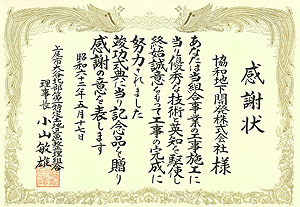 感謝状
協和地下開発株式会社 様
あなたは当組合事業の工事施工に
当り優秀な技術と英知を駆使し
終始誠意をもって工事の完成に
努力されました
竣功式典に当り記念品を贈り
感謝の意を表します
昭和六十二年五月十七日
上尾市大谷北部第一特定土地区画整理組合
理事長 小山敏雄